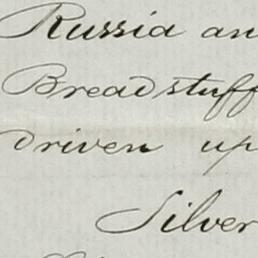 Russia an
Breadstuff
driven up
Silver